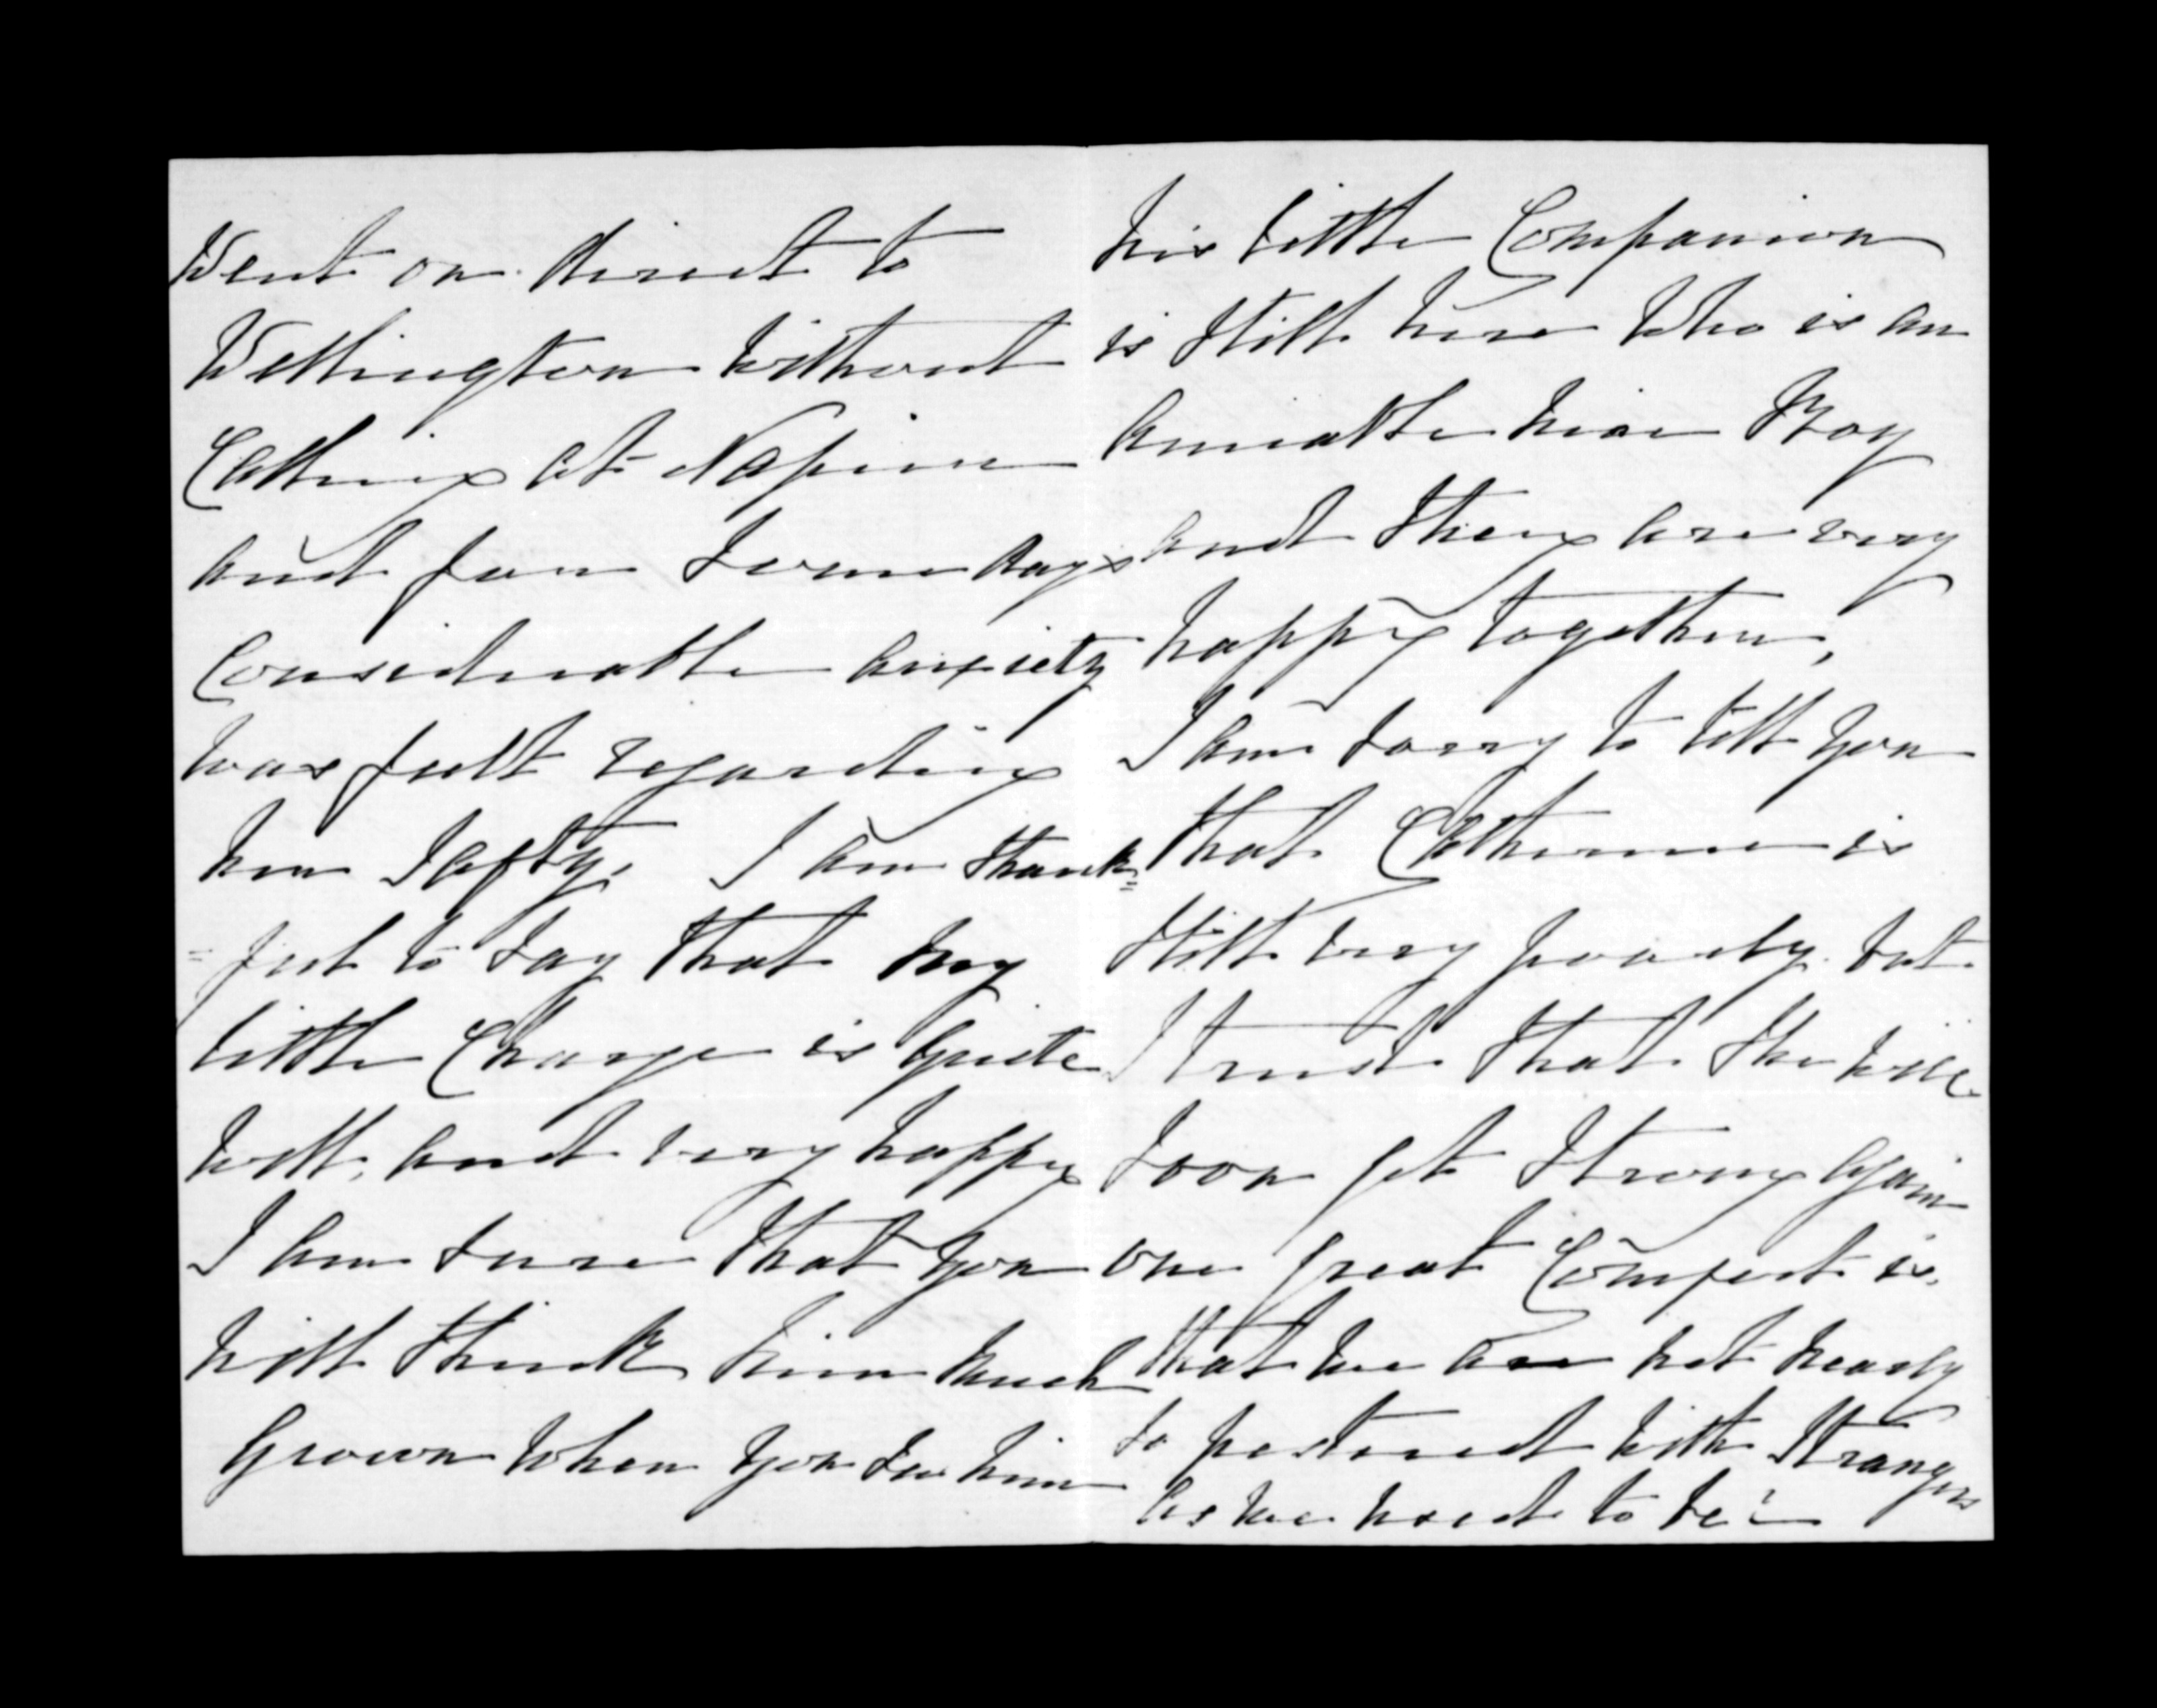 Went on direct to
Wellington without
Calling at Napier
and for some days
Considerable anxiety
was felt regarding
her Safty. I am thank=
=ful to say that my
little Charge is quite
well, and very happy
I am sure that you
will think him much
Grown when you see him
his little Companion
is still here who is an
amiable nice Boy
and they are very
happy together,
I am sorry to tell you
that Catherine is
still very poorly. but
I trust that she will
soon get strong again
one great Comfort is.
that we are not nearly
so pestered with Strangers
as we used to be